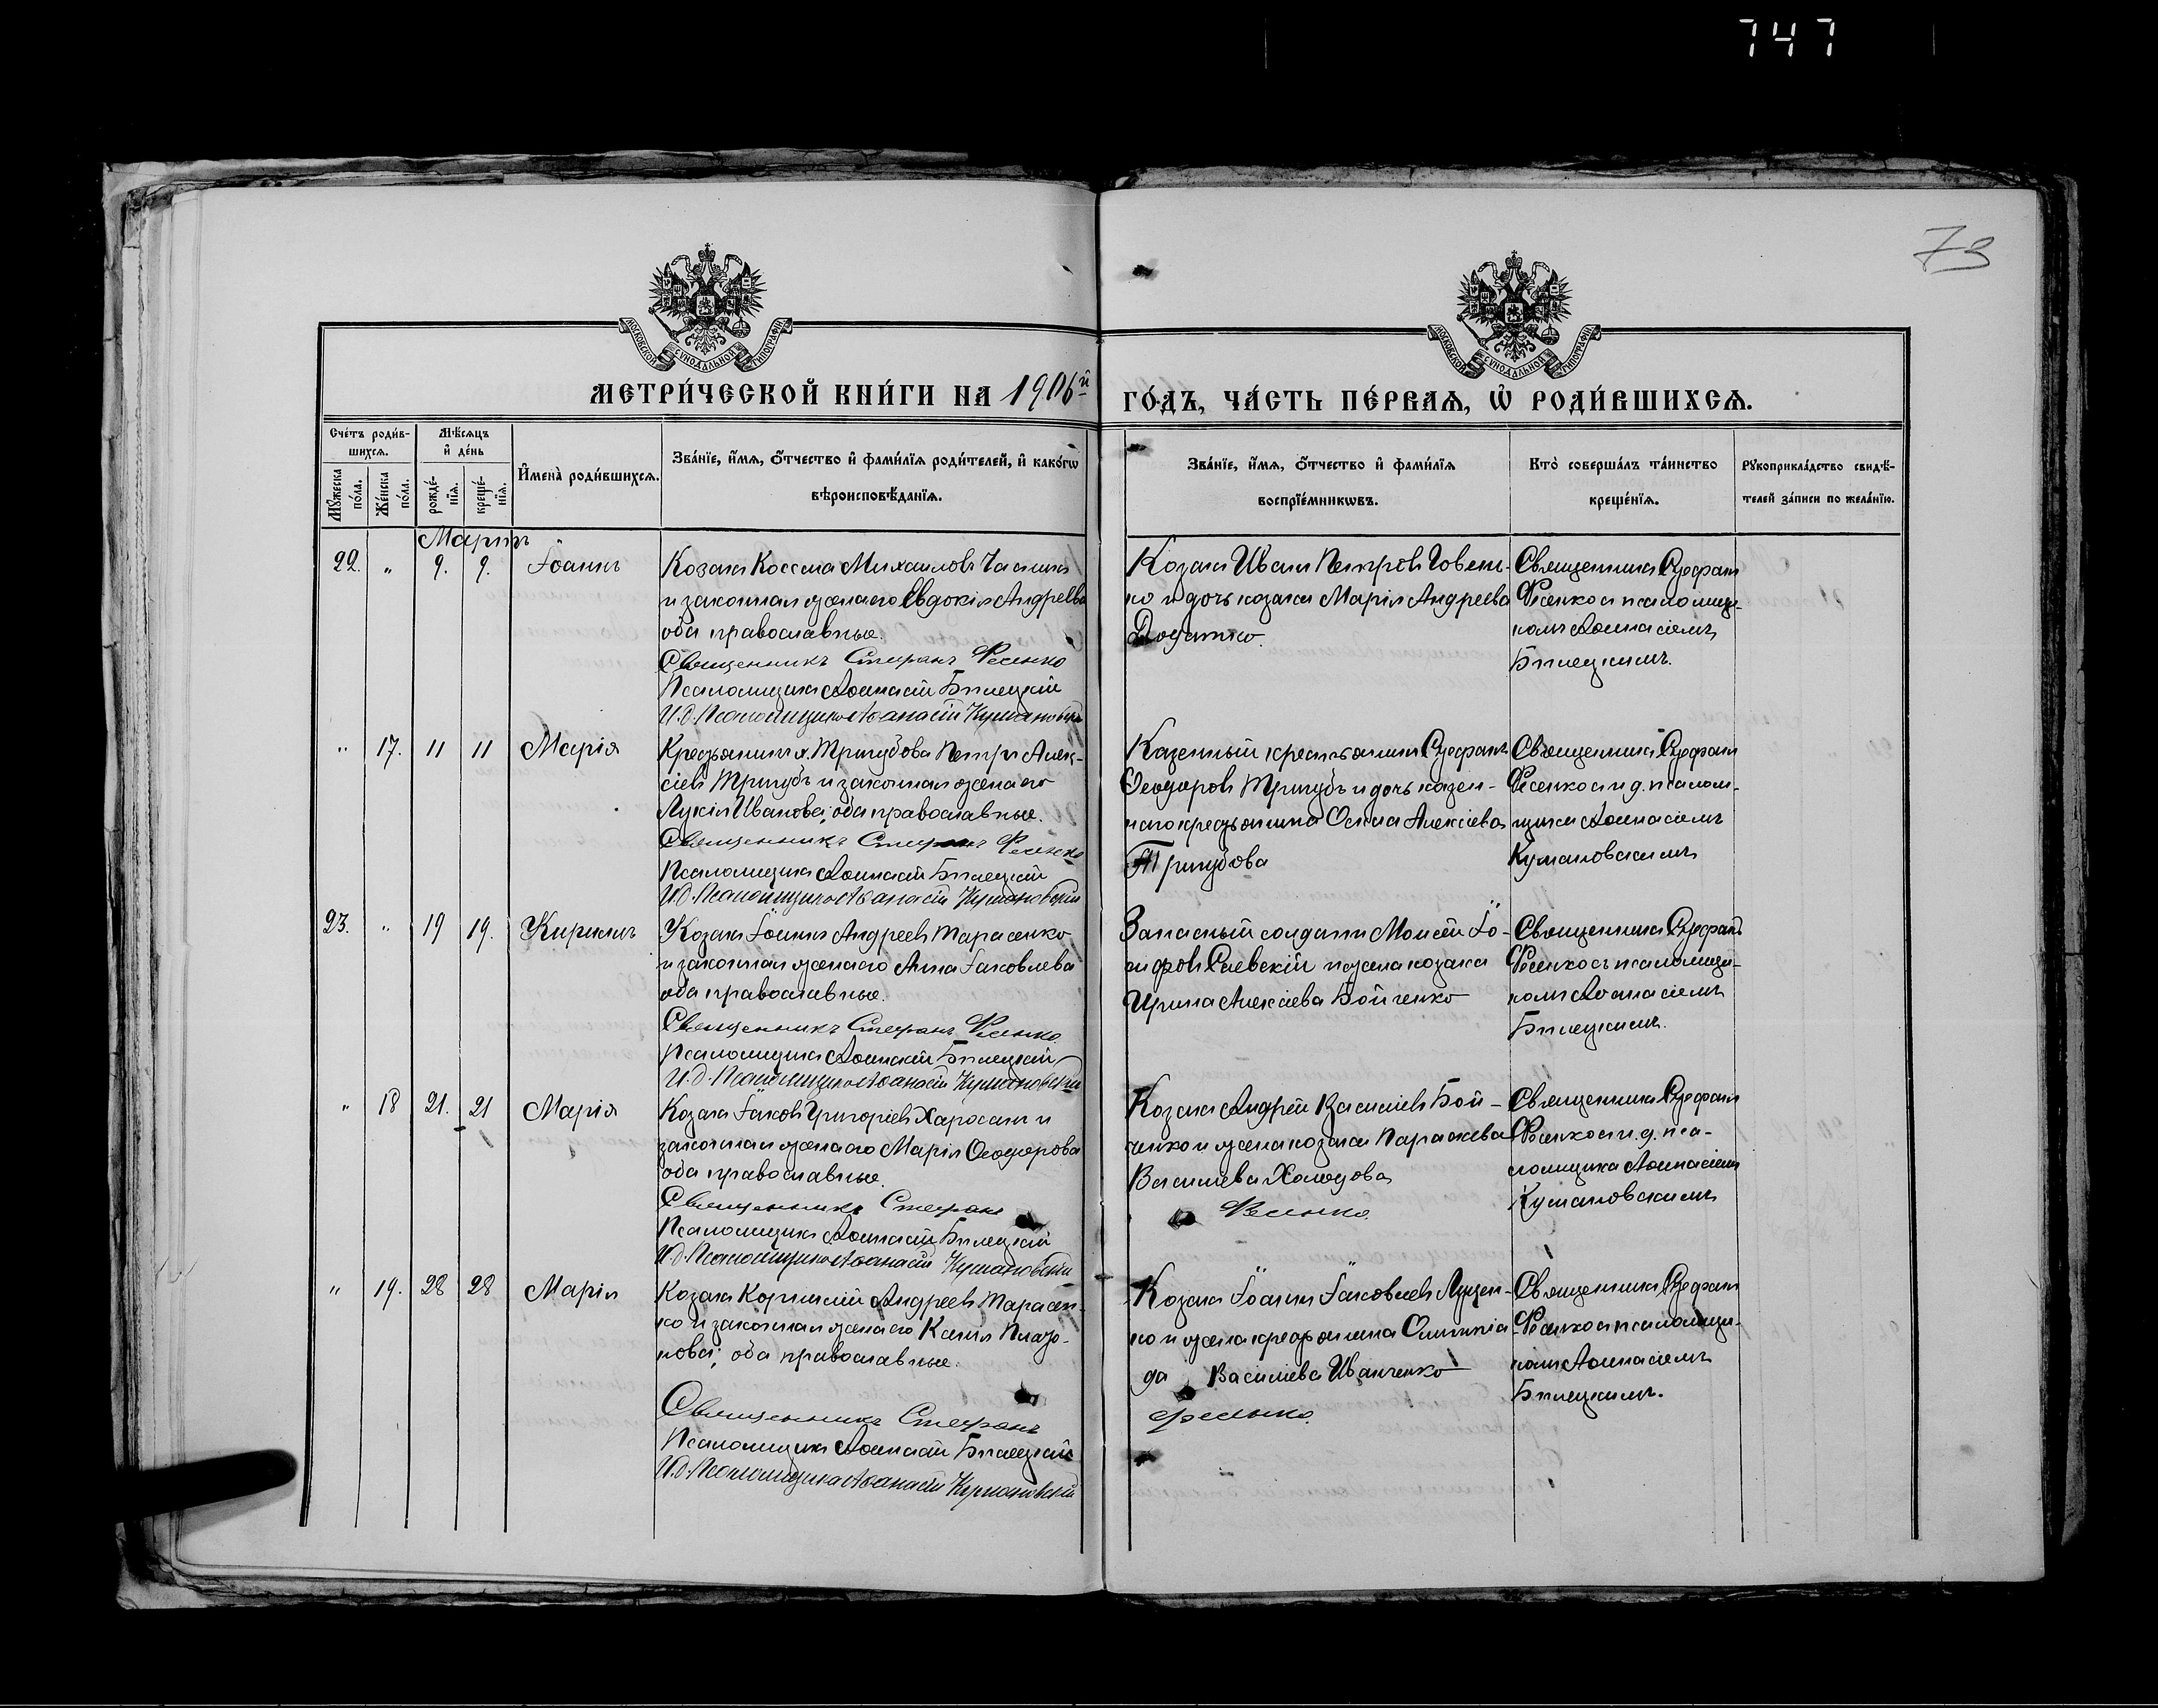 747
73
МОСКОВСКОЙ СУНОДАЛЬНОЙ ТИПОГРАФІИ
МОСКОВСКОЙ СУНОДАЛЬНОЙ ТИПОГРАФІИ
МЕТРИ́ЧЕСКОЙ КНИ́ГИ НА 1906й
ГО́ДЪ, ЧА́СТЬ ПЕ́РВАѦ, Ѡ҆ РОДИ́ВШИХСѦ.
Сче́тъ роди́в-
шихсѧ.
Мꙋжеска по́ла.
Же́нска по́ла.
Мѣ́сѧцъ
и҆ де́нь
рожде́-
нїѧ.
креще́-
нїѧ.
И҆мена̀ роди́вшихсѧ.
Зва́нїе, и҆́мѧ, ѻ҆́тчество и҆ фами́лїѧ роди́телей, и҆ како́гѡ
вѣроисповѣ́данїѧ.
Зва́нїе, и҆́мѧ, ѻ҆́тчество и҆ фами́лїѧ
воспрїе́мникѡвъ.
Кто̀ соверша́лъ та́инство
креще́нїѧ.
Рꙋкоприкла́дство свидѣ́-
телей за́писи по жела́нїю.
Мартъ
22. " 9. 9. Іоаннъ
Козакъ Косма Михаиловъ
и законная жена его Евдокія Андреева
оба православные.
Священникъ Стефанъ Фесенко
Псаломщикъ Аѳанасій Билецкій
И.д. Псаломщика Аѳанасій Кумановскій
Козакъ Иванъ Петровъ
но и дочь козака Марія Андреева
Священникъ Стефанъ
Фесенко съ псаломщи-
комъ Аѳанасіемъ
Билецкимъ.
" 17. 11 11 Марія
Крестьянинъ х. Тригубова Петръ Алек-
сіевъ Тригубъ и законная жена его
Лукія Иванова, оба православные.
Священникъ Стефанъ Фесенко
Псаломщикъ Аѳанасій Билецкій
И.д. Псаломщика Аѳанасій Кумановскій
Казенный крестьянинъ Стефанъ
Ѳеодоровъ Тригубъ и дочь казен-
наго крестьянина Алексіева
Тригубова
Священникъ Стефанъ
Фесенко съ и.д. псалом-
щика Аѳанасіемъ
Кумановскимъ
23. " 19 19. Кириллъ
Козакъ Іоаннъ Андреевъ Тарасенко
и законная жена его Анна Іаковлева
оба православные.
Священникъ Стефанъ Фесенко
Псаломщикъ Аѳанасій Билецкій
И.д. Псаломщика Аѳанасій Кумановскій
Запасный солдатъ Моисей Іо-
сифовъ Раевскій и жена козака
Ирина Алексіева Бойченко
Священникъ Стефанъ
Фесенко съ псаломщи-
комъ Аѳанасіемъ
Билецкимъ.
" 18 21. 21 Марія
Козакъ Іаковъ Григоріевъ и
законная жена его Марія Ѳеодорова
оба православные.
Священникъ Стефанъ
Псаломщикъ Аѳанасій Билецкій
И.д. Псаломщика Аѳанасій Кумановскій
Козакъ Андрей Василіевъ Бой-
ченко и жена козака Параскева
Василіева
Фесенко.
Священникъ Стефанъ
Фесенко съ и.д. пса-
ломщика Аѳанасіемъ
Кумановскимъ
" 19. 28 28 Марія
Козакъ Корнилій Андреевъ Тарасен-
ко и законная жена его Ксенія Плато-
нова, оба православные.
Священникъ Стефанъ
Псаломщикъ Аѳанасій Билецкій
И.д. Псаломщика Аѳанасій Кумановскій
Козакъ Іоаннъ Іаковлевъ Луцен-
ко и жена крестьянина Олимпіа-
да Василіева Иванченко
Фесенко.
Священникъ Стефанъ
Фесенко съ псаломщи-
комъ Аѳанасіемъ
Билецкимъ.